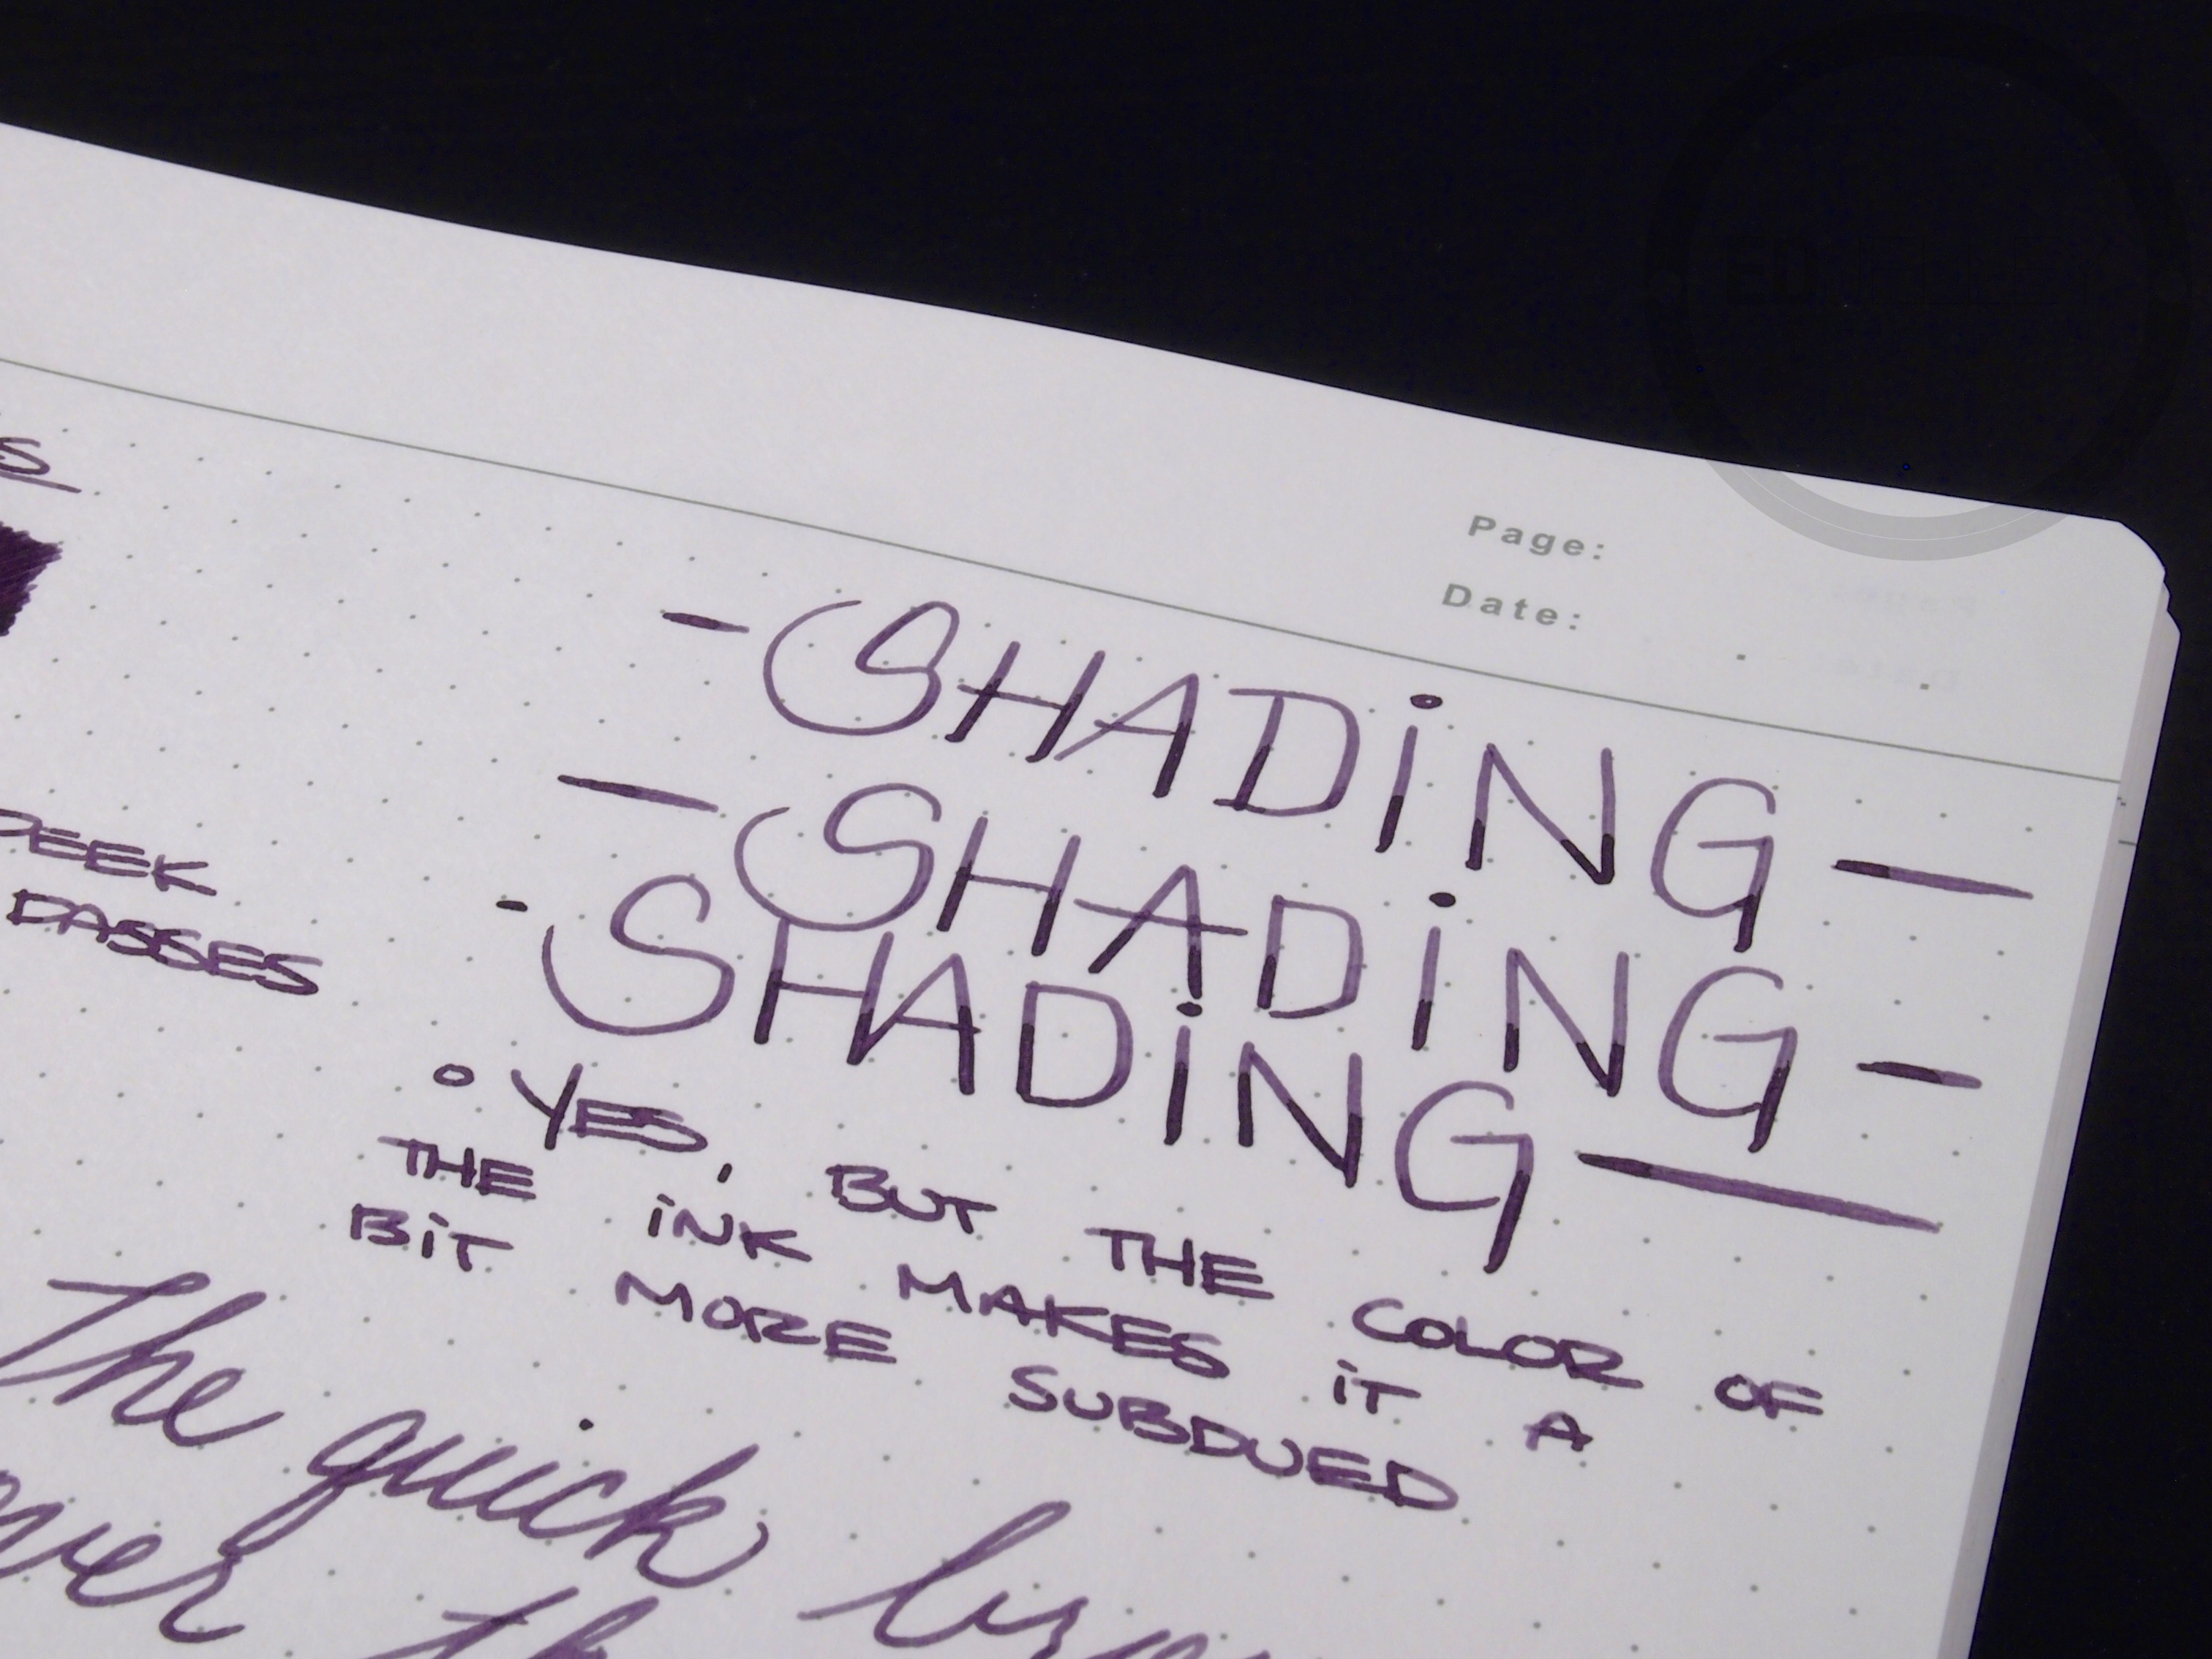 Page:
Date:
- SHADiNG -
- SHADiNG -
- SHADiNG -
PASSES
YES, BUT THE COLOR OF
THE iNK MAKES iT A
BiT MORE SUBDUED
The quick
over